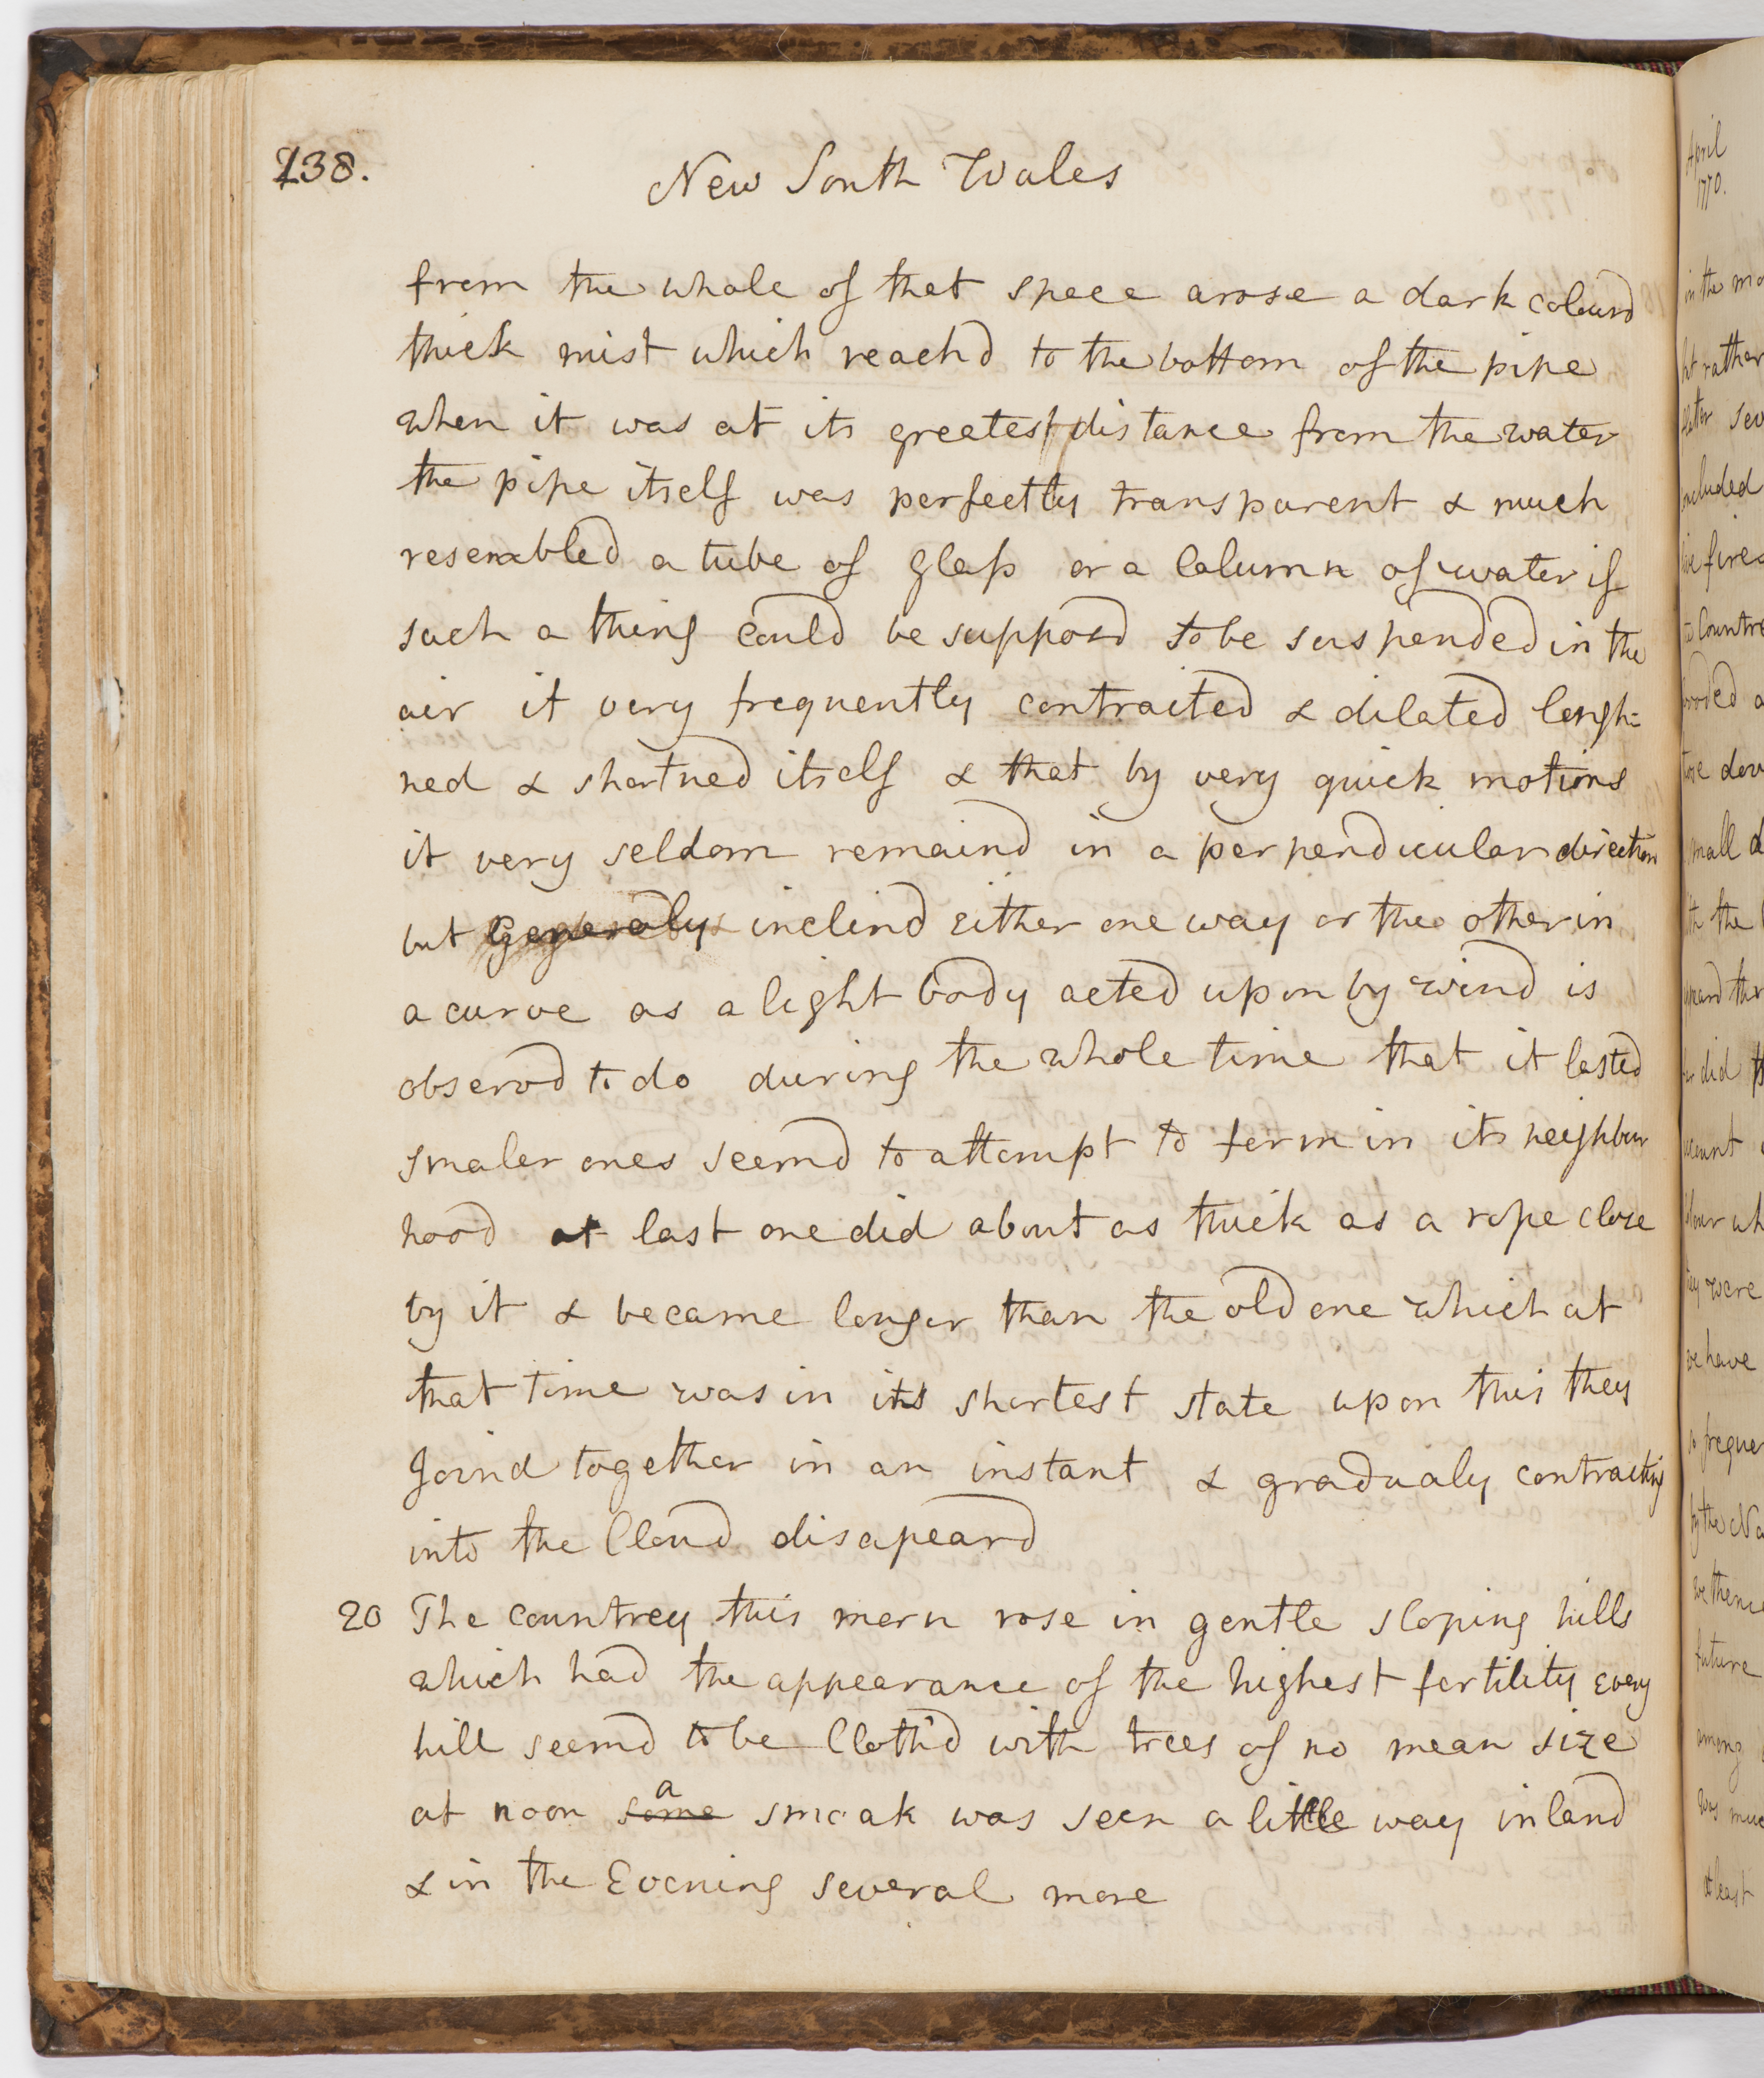 238.
New South Wales
from the whole of that space arose a dark colourd
thick mist which reachd to the bottom of the pipe
when it was at its greatest distance from the water
the pipe itself was perfectly transparent & much
resembled a tube of glass or a Column of water if
such a thing could be supposd to be suspended in the
air it very frequently contracted & dilated lengh-
ned & shortned itself & that by very quick motions
it very seldom remaind in a perpendicular direction
but Generaly inclind either one way or the other in
a curve as a light body acted upon by wind is
observd to do during the whole time that it lasted
smaler ones seemd to attempt to form in its neighbour
hood at last one did about as thick as a rope close
by it & became longer than the old one which at
that time was in its shortest state upon this they
Joind together in an instant & gradualy contracting
into the Cloud disapeard
20 The countrey this morn rose in gentle sloping hills
which had the appearance of the highest fertility every
hill seemd to be Cloth'd with trees of no mean size
at noon some a smoak was seen a little way inland
& in the Evening several more
April
1770.
in the mo
rather
sev
ncluded
fires
Countre
ooded a
dow
mall d
the
did
ount
wh
were
we have
freque
by the No
we thenc
future
among
was muc
at least